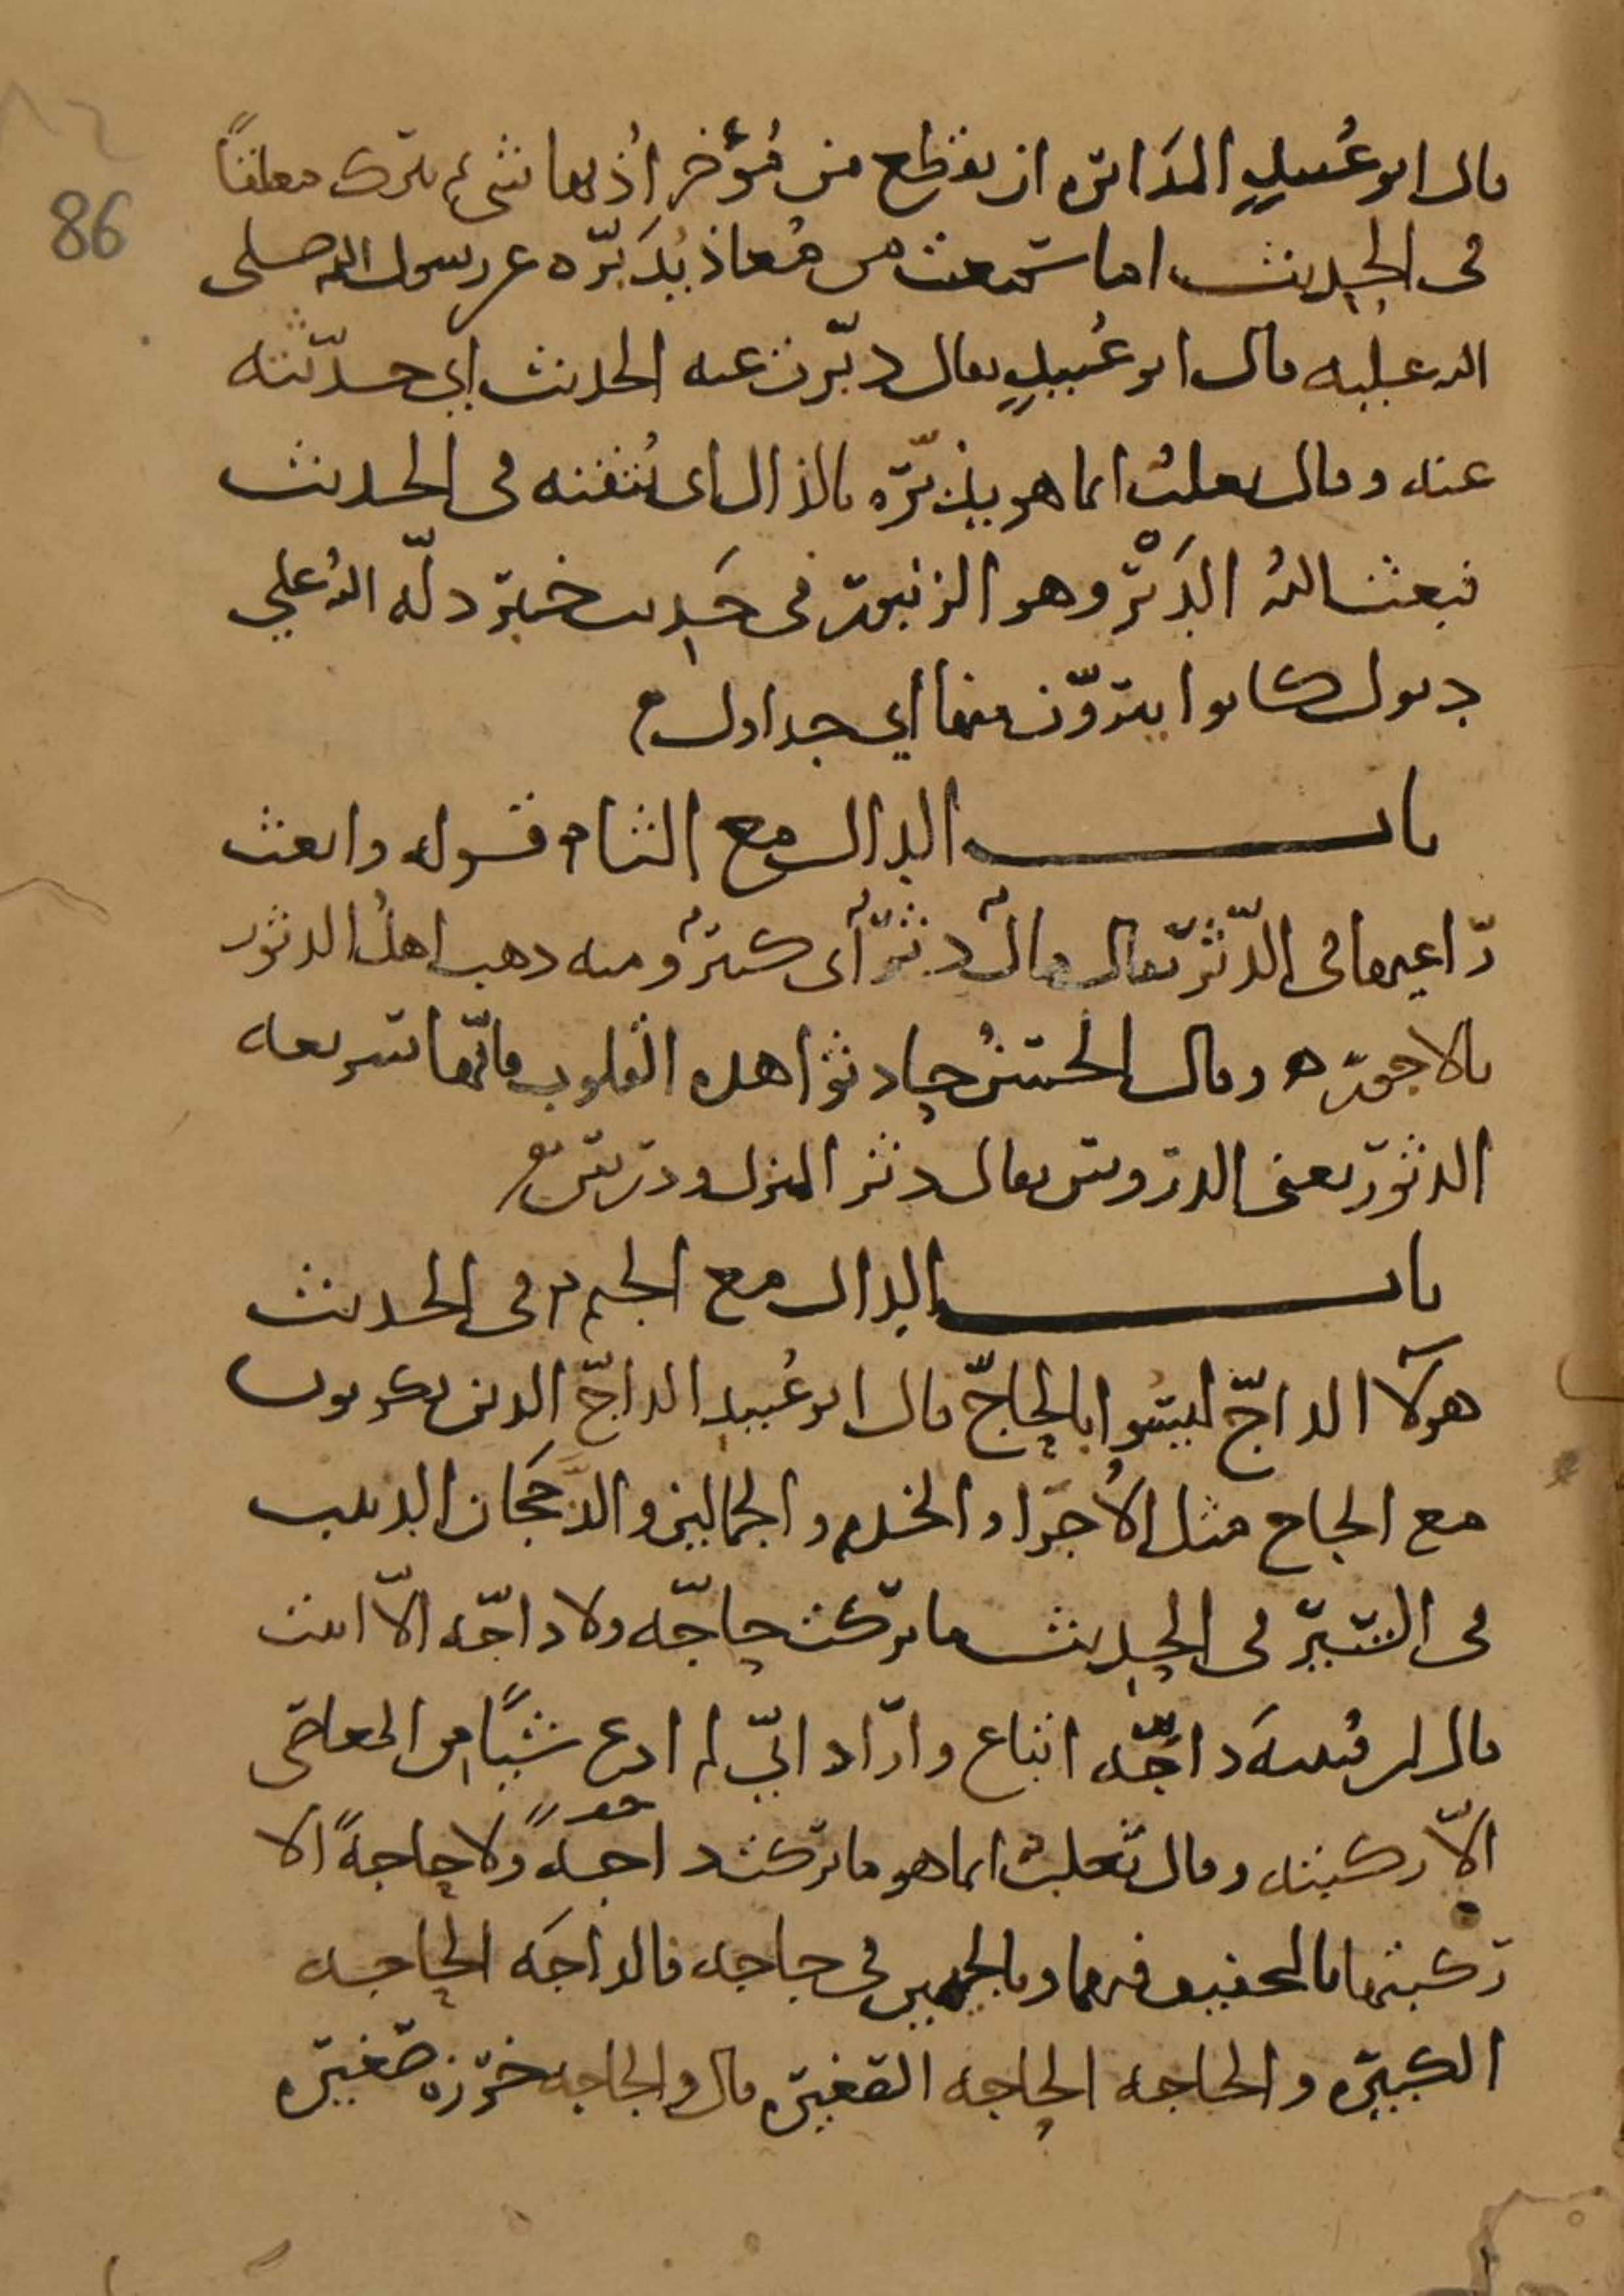 86
قال ابو عُبيدٍ المدَابره ان يقطع من مُؤخر اُذنها شيءٌ يترك معلقًا
في الحديث اما سمعت من مُعاذ يُدَبّره عن رسول الله صلى
الله عليه قال ابو عُبيدٍ يقال دبّرت عنه الحديث اي حدّثته
عنه وقال ثعلبٌ انما هو يذبّره بالذال اى يُتقنه فى الحديث
فبعث اللهُ الدَبْر وهو الزنبور فى حَديث خيبر دلّه اللهُ على
دبول كانوا يتروّن منها أي جداول
باب الدال مع الثاء قوله وابعث
راعيها فى الدّثر يقال مالٌ دثرٌ أى كثيرٌ ومنه ذهب اهلُ الدثور
بالاجور ه وقال الحسنُ حادثوا هذه القلوب فانّها سريعه
الدثور يعنى الدروس يقال دثر المنزل ودرس
باب الدال مع الجيم في الحديث
هولآ الداجّ ليسُوا بالحاجّ قال ابو عُبيد الداجّ الذين يكونون
مع الحاج مثل الاُجرا والخدم والجمالين والدَّجَجان الدبيب
فى السّير فى الحديث ما تركت حاجّه ولا داجّه الاّ اتيت
قال ابن قتيبهَ داجّه اتباع واراد انّي لم ادع شيًا من المعاصى
الاّ ركبته وقال ثعلبٌ انما هو ما تركت داجهً ولا حاجهً الا
ركبتها بالتخفيف فيهما وبالجيمين فى جاجه فالداجَه الحاجه
الكبيره والحاجه الحاجه الصغيره قال والجاجه خرزه صغيره